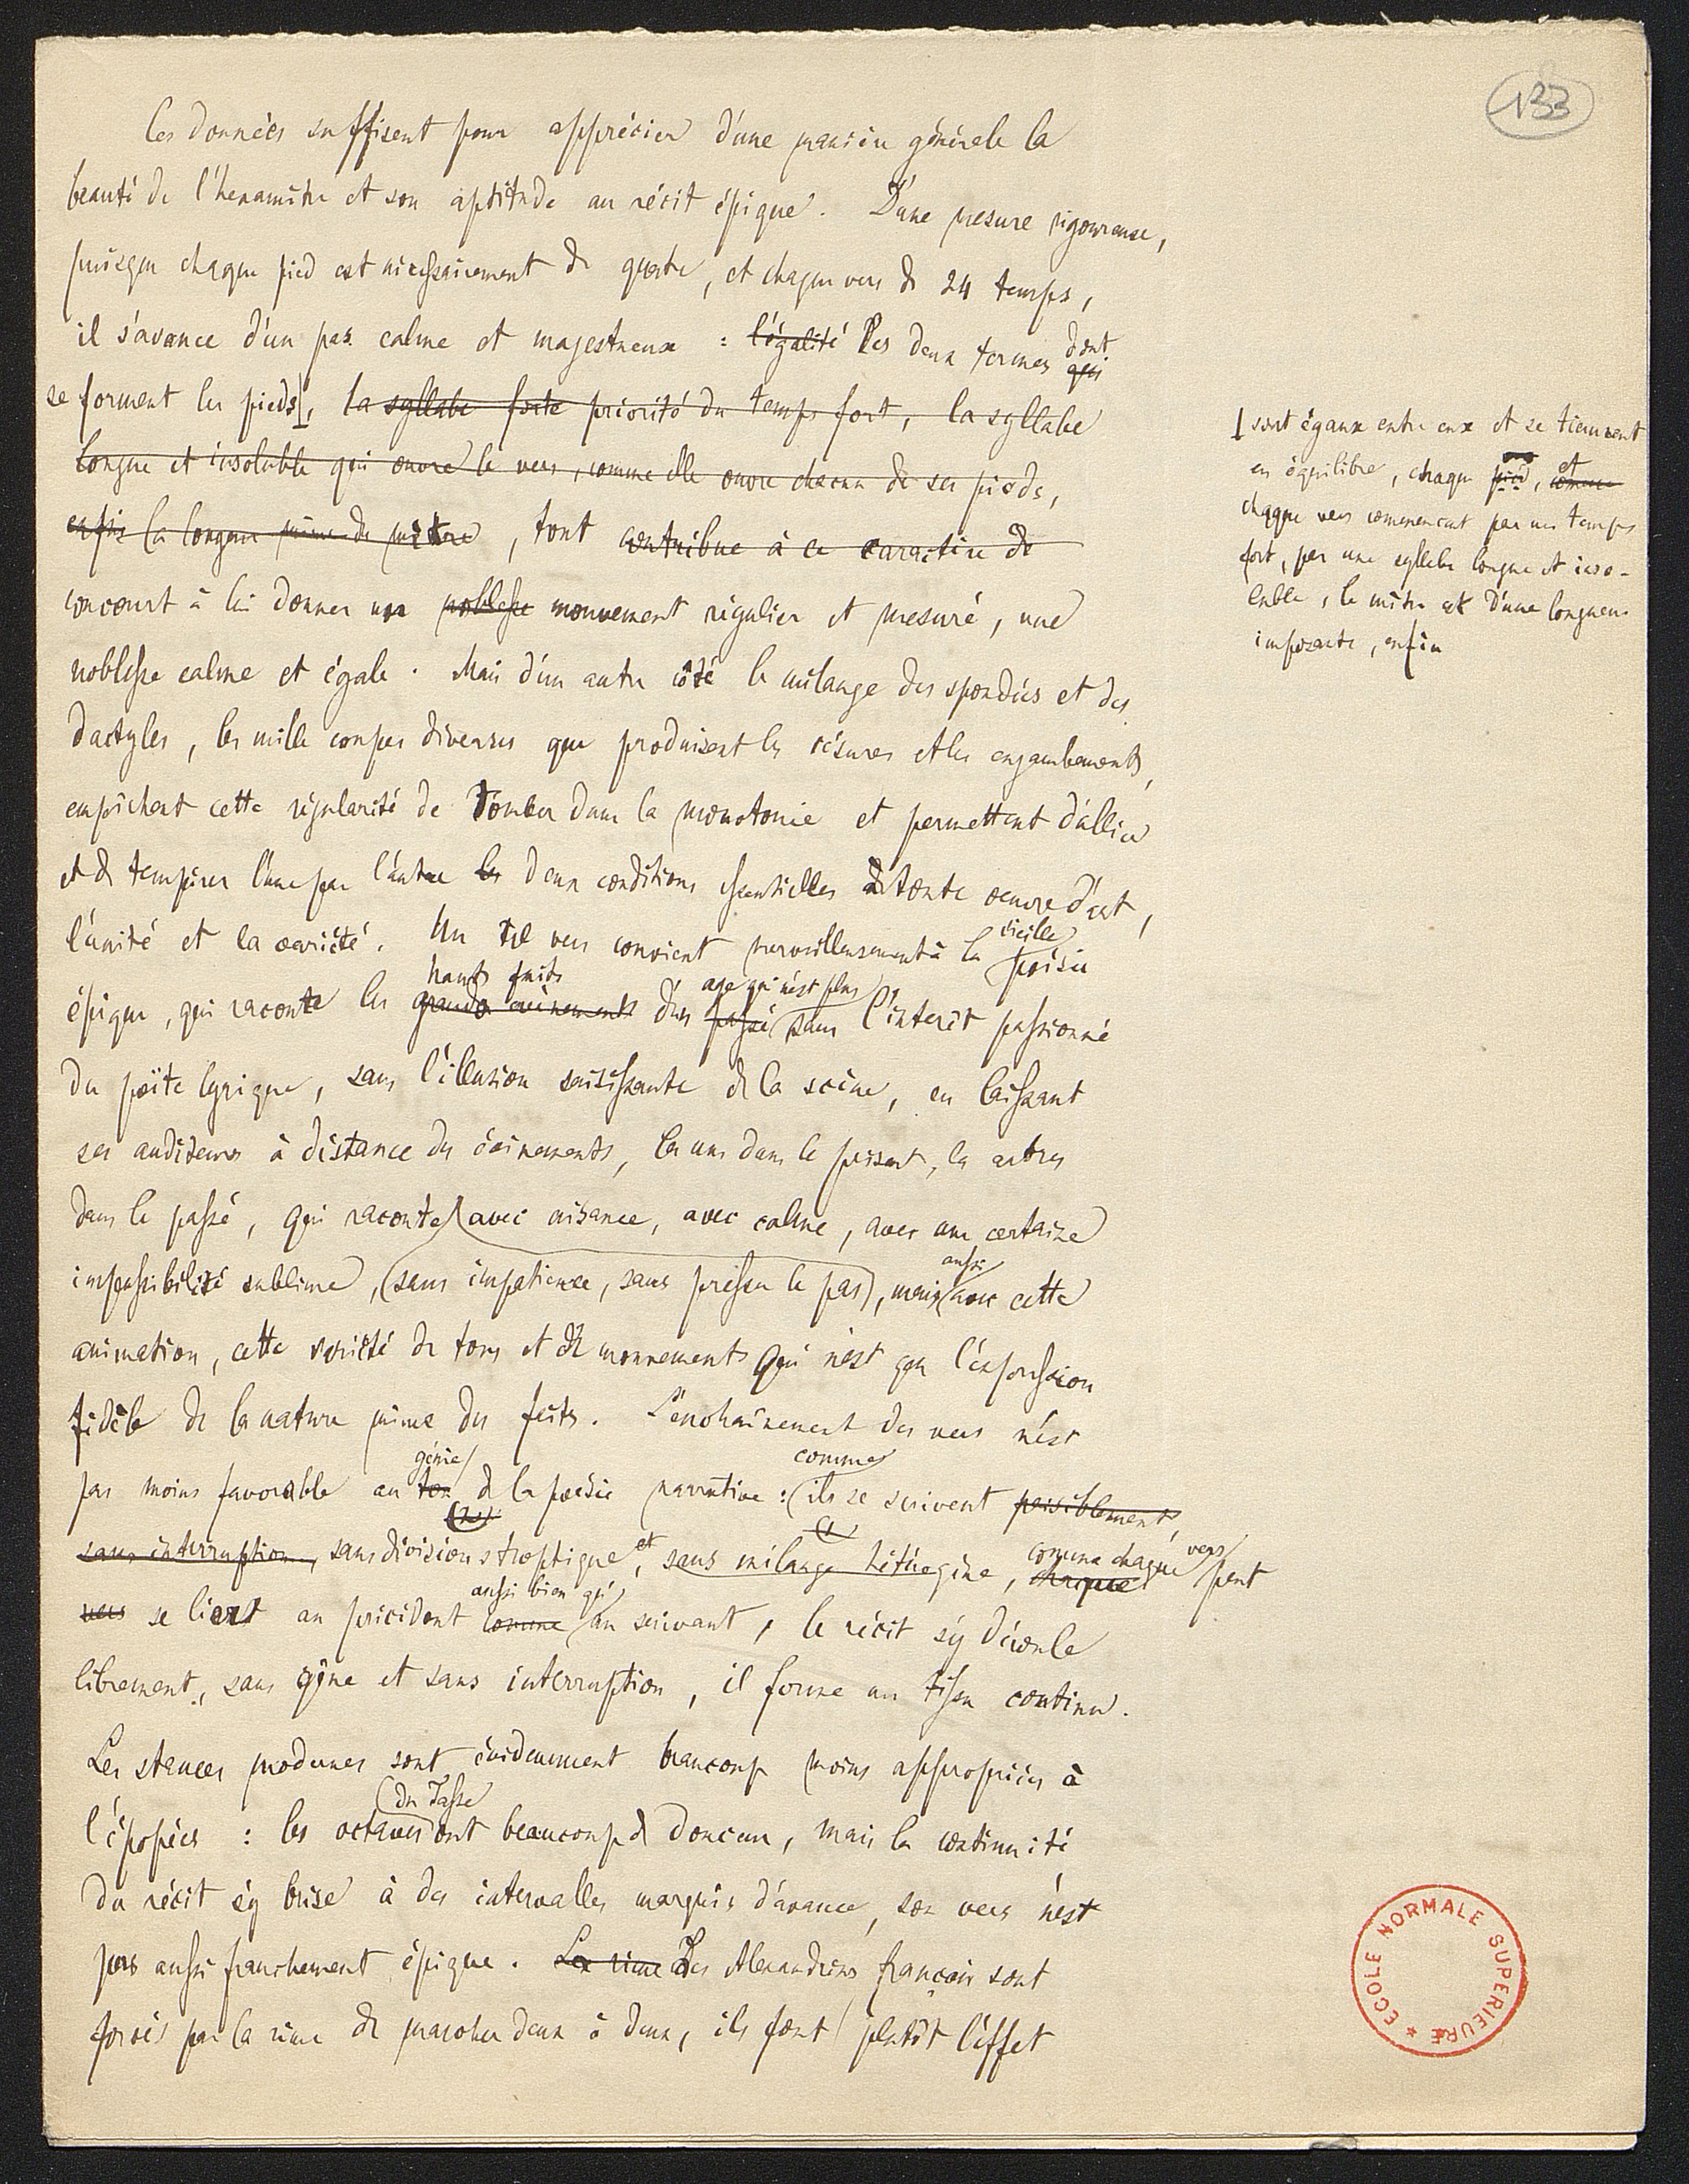 133
Ces données suffisent pour apprécier d'une manière générale la
beauté de l'hexamètre et son aptitude au récit épique. D'une mesure rigoureuse,
puisque chaque pied est nécessairement de quatre, et chaque vers de 24 temps,
il s'avance d'un pas calme et majestueux : l'égalité Les deux termes dont qui
se forment les pieds, la syllabe forte priorité du temps fort, la syllabe
longue et insoluble qui ouvre le vers, comme elle ouvre chacun de ses pieds,
enfin la longueur même du mètre, tout contribue à ce caractère de
concourt à lui donner un noblesse mouvement régulier et mesuré, une
noblesse calme et égale. Mais d'un autre côté le mélange des spondées et des
dactyles, les mille coupes diverses que produisent les césures et les enjambements,
empêchent cette régularité de tomber dans la monotonie et permettent d'allier
et de tempérer l'une par l'autre les deux conditions essentielles de toute œuvre d'art,
l'unité et la variété. Un tel vers convient merveilleusement à la vieille poésie
épique, qui raconte les hauts faits grands événements d'un age qui n'est plus passé sans l'intérêt passionné
du poëte lyrique, sans l'illusion saisissante de la scène, en laissant
ses auditeurs à distance des événements, les uns dans le présent, les autres
dans le passé, qui raconte avec aisance, avec calme, avec une certaine
impassibilité sublime, (sans impatience, sans presser le pas), mais aussi avec cette
animation, cette variété de tons et de mouvements qui n'est que l'expression
fidèle de la nature même des faits. L'enchaînement des vers n'est
pas moins favorable au génie ton de la poésie narrative : comme ils se suivent paisiblement,
sans interruption, sans division strophique, et sans mélange hétérogène, comme chaque vers chaque peut
vers se lient au précédent aussi bien qu' comme au suivant, le récit s'y déroule
librement, sans gêne et sans interruption, il forme un tissu continu.
Les stances modernes sont évidemment beaucoup moins appropriées à
l'épopées : les octaves du Tasse ont beaucoup de douceur, mais la continuité
du récit s'y brise à des intervalles marqués d'avance, son vers n'est
pas aussi franchement épique. La rime Les Alexandrins français sont
forcés par la rime de marcher deux à deux, ils font plutôt l'effet
sont égaux entre eux et se tiennent
en équilibre, chaque pied, et comme
chaque vers commencent par un temps
fort, par une syllabe longue et inso-
luble, le mètre est d'une longueur
imposante, enfin
ECOLE NORMALE SUPERIEURE